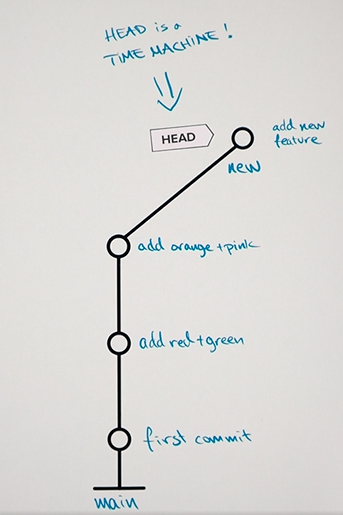 HEAD is a
TIME MACHINE!
HEAD
add new
feature
new
add orange+pink
add red+green
first commit
main